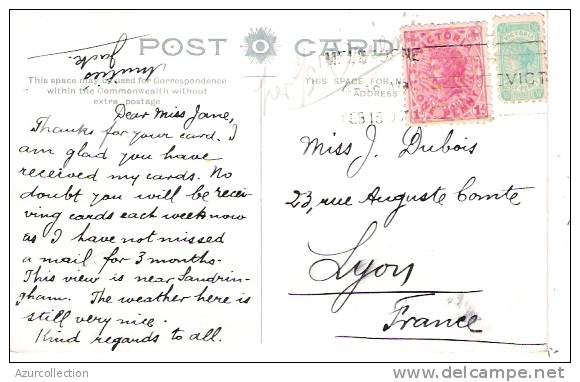 Amitiés
Jack.
POST CARD
This space may be used for Correspondence
within the Commonwealth without
extra postage
THIS SPACE FOR
ADDRESS
VICTORIA
ONE PENNY
1d
VICTORIA
VICT
FEB 15
Dear Miss Jane,
Thanks for your card. I
am glad you have
received my cards. No
doubt you will be recei-
ving cards each week now
as I have not missed
a mail for 3 months.
This view is near Sandrin-
gham. The weather here is
still very nice.
Kind regards to all.
Miss J. Dubois
23, rue Auguste Comte
Lyon
France
Azurcollection
www.delcampe.net